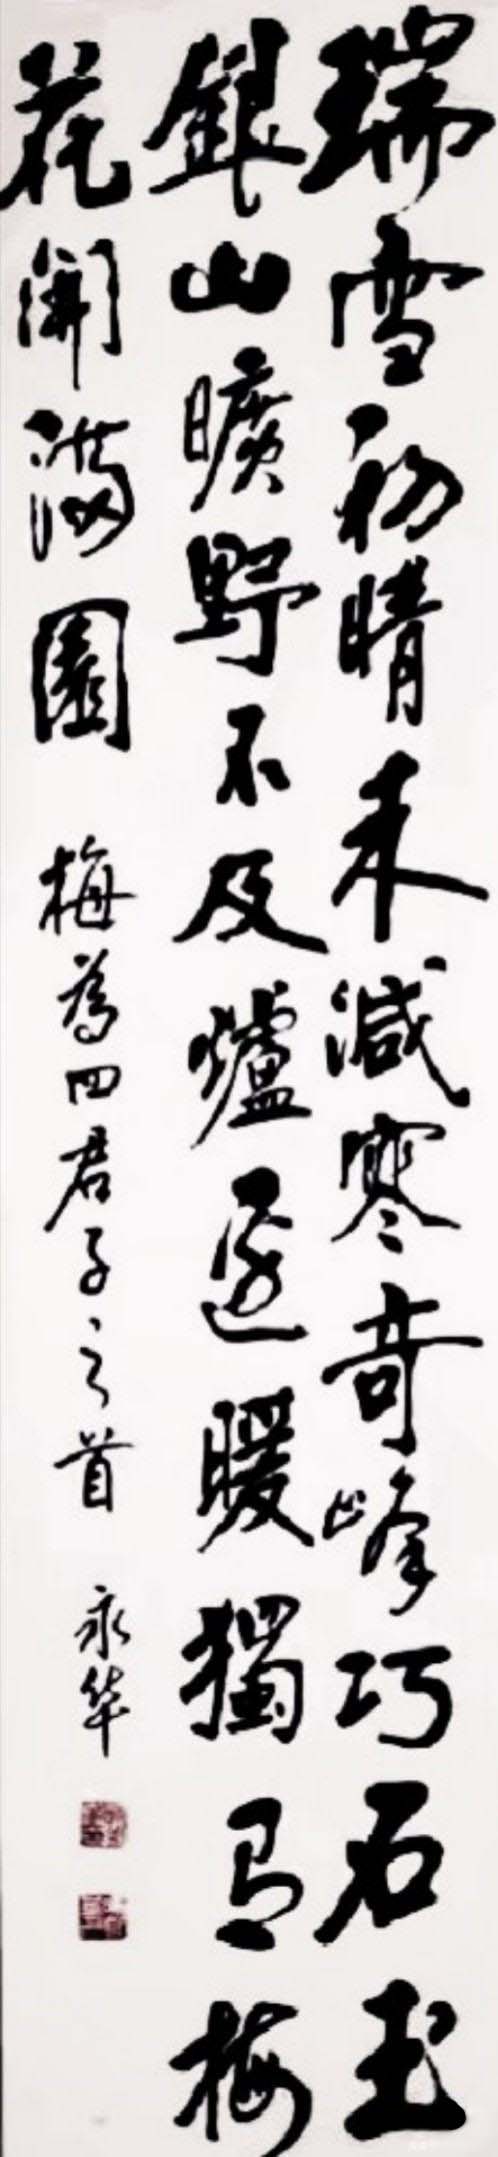 瑞雪初晴未減寒奇峰巧石玉
銀山曠野不及爐邊暖獨有梅
花開滿園 梅為四君子之首 永华